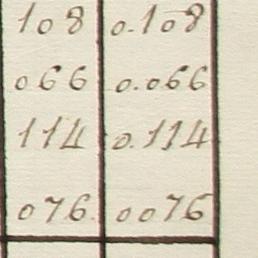 108 0.108
066 0.066
114 0.114
076. 0076